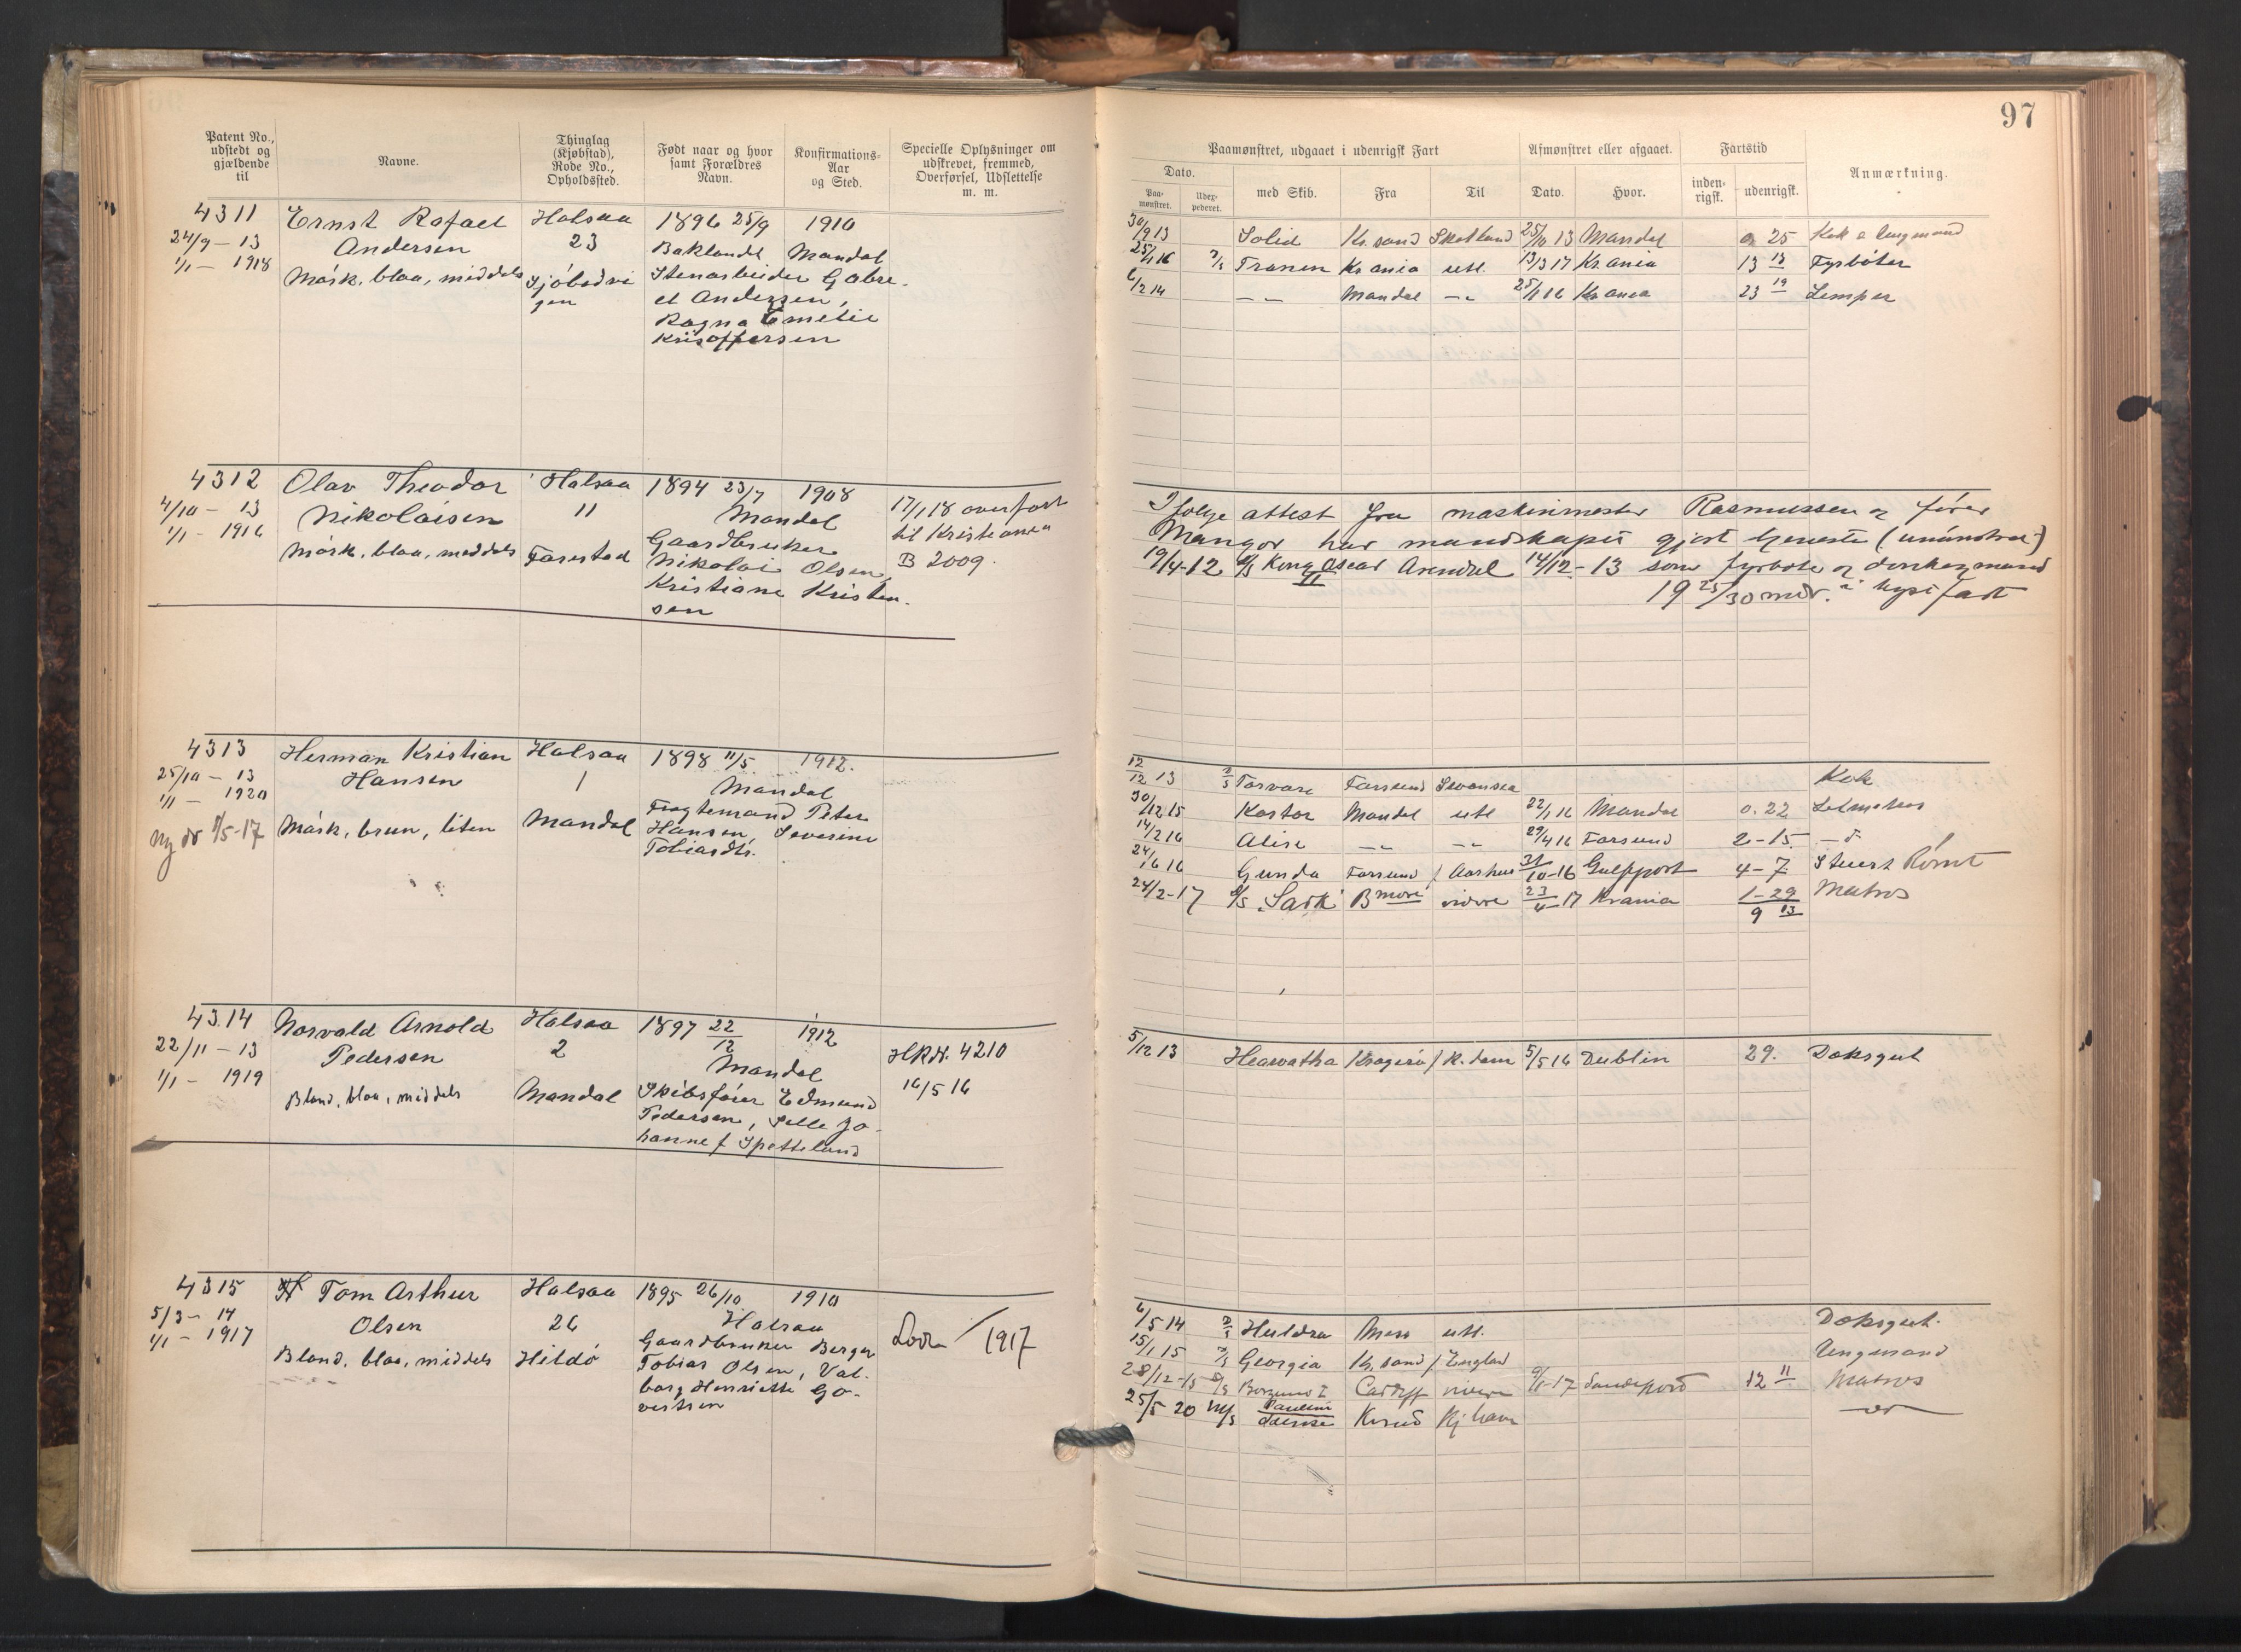 97
Patent No., udstedt og gjældende til
Navne.
Thinglag (Kjøbstad), Rode No., Opholdssted.
Født naar og hvor samt Forældres Navn.
Konfirmations-Aar og Sted.
Specielle Oplysninger om udskrevet, fremmed, Overførsel, Udslettelse m. m.
Paamønstret, udgaaet i udenrigsk Fart
Afmønstret eller afgaaet.
Fartstid
Anmærkning.
Dato.
Paa-mønstret.
med Skib.
Fra
Til
Dato.
Hvor.
inden-rigsk.
udenrigsk.
4311 Ernst Rafael Halsaa 1896 25/9 1910
24/9 – 13 Andersen 23 Baklandet Mandal
1/1 – 1918 Mörk, blaa, middels Sjöbodvi Stenarbeider Gabri-
gen el Andersen,
Ragna Emelie
Kristoffersen
30/9 13 Solid Kr.sand Skotland 25/10 13 Mandal 0 25 Kok o Ungmand
25/1 16 Tranen Kr ania utl. 13/3 17 Kr ania 13 18 Fyrböter
6/2 14 –„– Mandal –„– 25/1 16 Kr ania 23 19 Lemper
4312 Olav Theodor Halsaa 1894 23/7 1908 17/1 18 overfört
4/10 – 13 Nikolaisen 11 Mandal til Kristiania
1/1 – 1916 Mörk, blaa, middels Farestad Gaardbruker B 2009.
Nikolai Olsen,
Kristiane Kristen-
sen
Ifölge attest fra maskinmester Rasmussen og förer
Mangor har mandskapet gjort tjeneste (umönstret)
19/4-12 D/S Kong Oscar II Arendal 14/12-13 som fyrböter og donkeymand
19 25/30 mdr. i kystfart
4313 Herman Kristian Halsaa 1898 11/5 1912.
25/10 – 13 Hansen 1 Mandal
1/1 – 1920 Mörk, brun, liten Mandal Fragtemand Peter
Ny do 8/5-17 Hansen, Severine
Tobiasdtr.
12/12 13 Torvore Farsund Swansea Kok
30/12 15 Kastor Mandal utl 22/1 16 Mandal 0.22 Letmatros
14/2 16 Alise –„– –„– 29/4 16 Farsund 2-15. –d–
24/6 16 Gunda Farsund / Aarhus 31/10-16 Gulfport 4-7 Stuert
24/2-17 D/S Sark Bmore videre 23/4 17 Krania 1-29 Matros
9 13
4314 Norvald Arnold Halsaa 1897 22/12 1912
22/11 – 13 Pedersen 2 Mandal HRN. 4210
1/1 – 1919 Blond, blaa, middels Mandal Skibsförer Edmund 16/5 16
Pedersen, Lelle Jo-
hanne f Spetteland
5/12 13 Heawatha Kragerö / R.dam 5/5 16 Dublin 29. Doksgut
4315 Tom Arthur Halsaa 1895 26/10 1910
5/3 – 14 Olsen 26 Halsaa
1/1 – 1917 Blond, blaa, middels Hildö Gaardbruker Berger 1917
Tobias Olsen, Val-
borg Henriette Go-
vertsen
6/5 14 Huldra Moss utl. Doksgut.
15/1 15 Georgia Kr.sand / England Ungmand
28/12-15 D/S Borgund I Cardiff videre Sandeford 12 11 Matros
25/5 20 M/S Kr.sand Kj.havn do